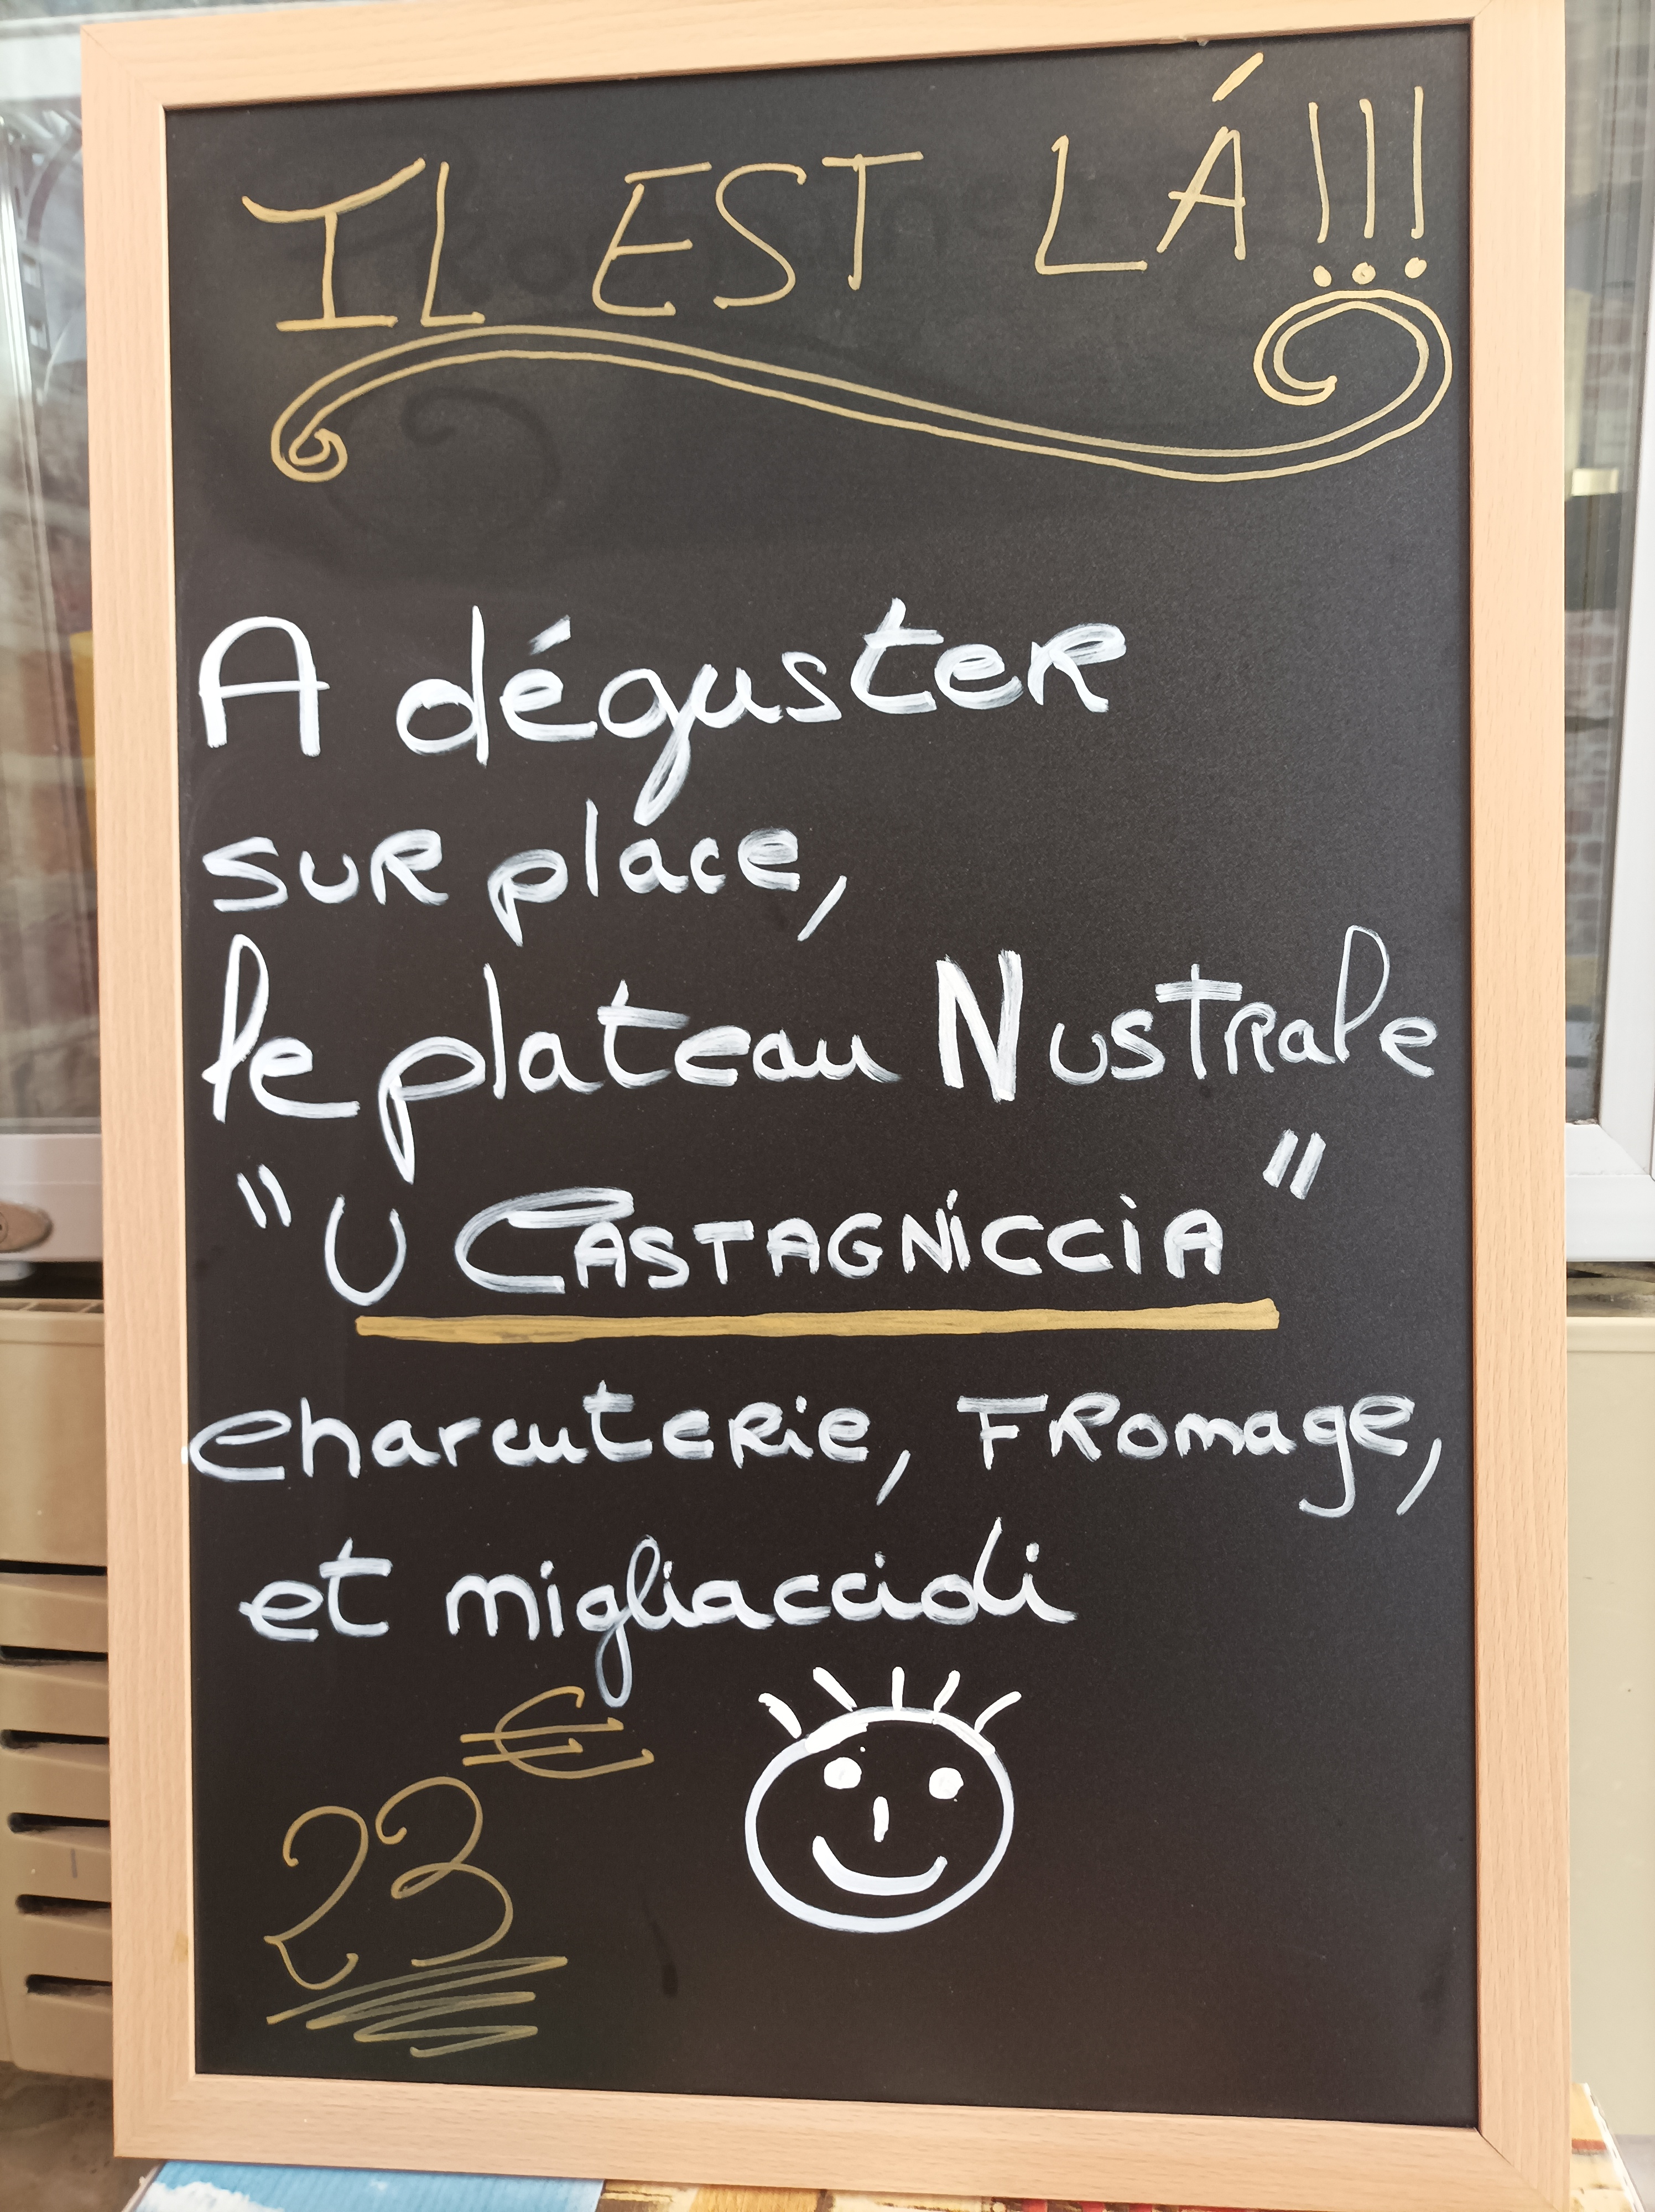 IL EST LÁ!!!
A déguster
sur place,
le plateau Nustrale
"U CASTAGNICCIA"
charcuterie, Fromage,
et migliaccioli
23€